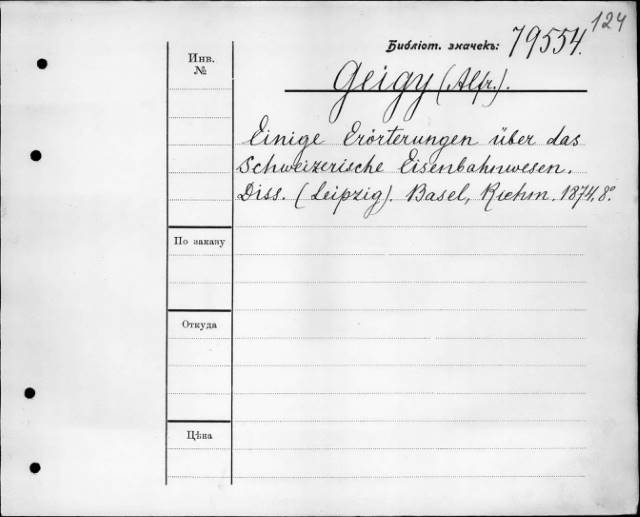 124
Библіот. значекъ: 79554.
Инв.
№
Geigy (Alfr.).
Einige Erörterungen über das
Schweizerische Eisenbahnwesen.
Diss. (Leipzig). Basel, Riehm. 1874. 8°.
По заказу
Откуда
Цѣна